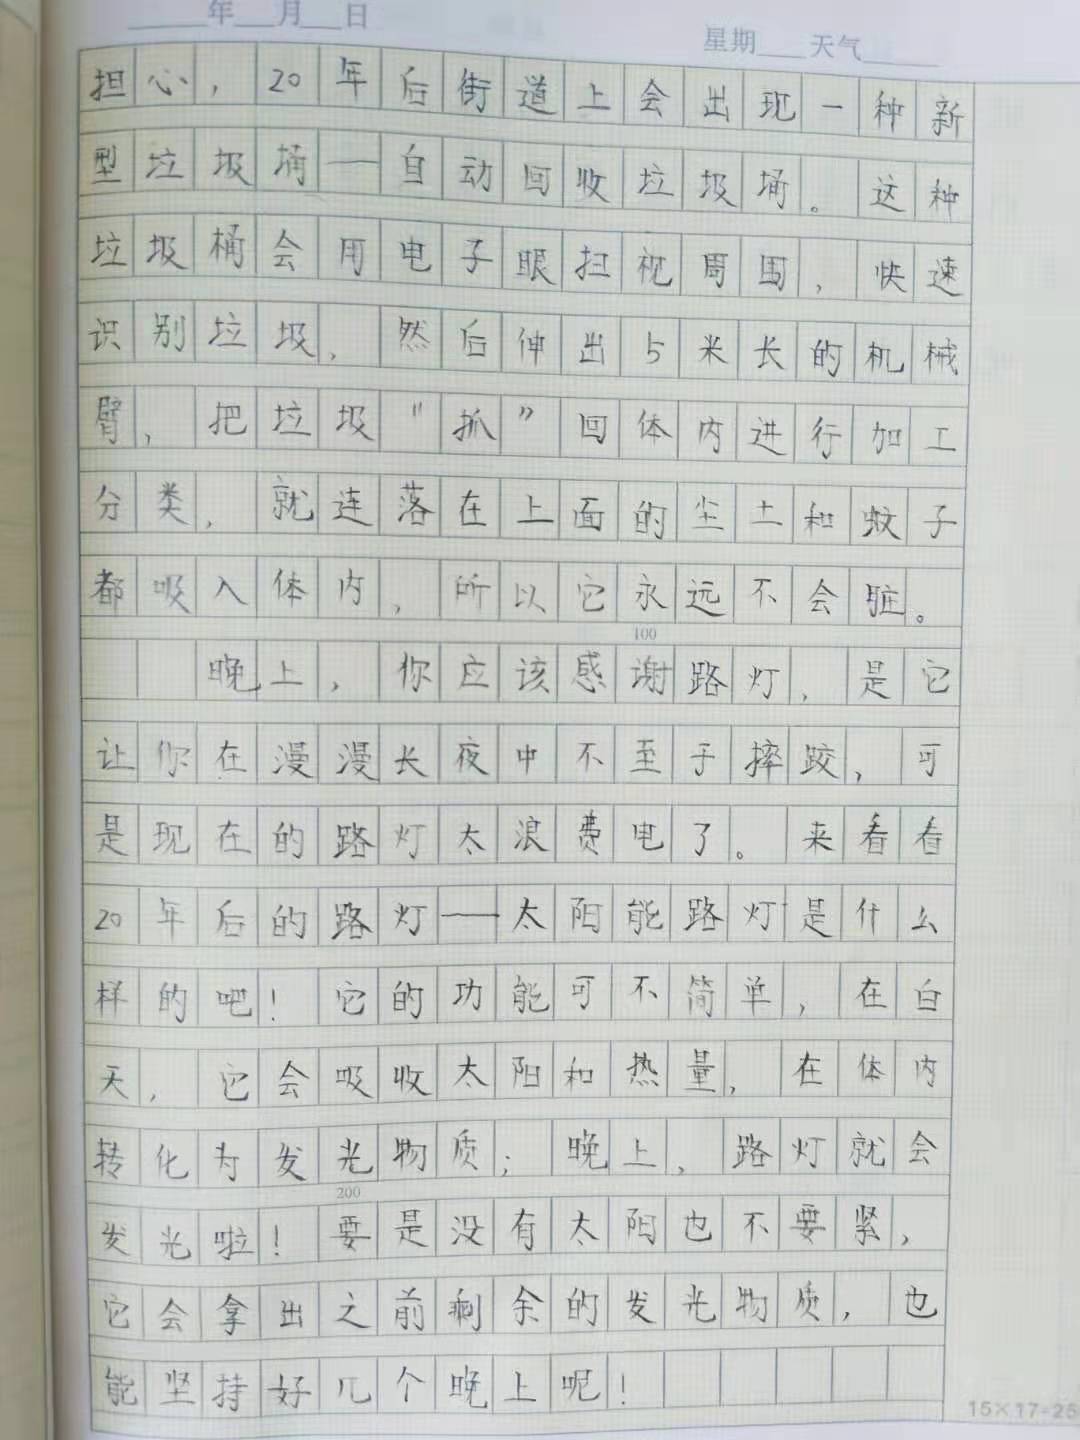 年 月 日
星期 天气
担心，20年后街道上会出现一种新
型垃圾埇——自动回收垃圾埇。这种
垃圾桶会用电子眼扫视周围，快速
识别垃圾，然后伸出5米长的机械
臂，把垃圾“抓”回体内进行加工
分类，就连落在上面的尘土和蚊子
都吸入体内，所以它永远不会脏。
100
晚上，你应该感谢路灯，是它
让你在漫漫长夜中不至于摔跤，可
是现在的路灯太浪费电了。来看看
20年后的路灯——太阳能路灯是什么
样的吧！它的功能可不简单，在白
天，它会吸收太阳和热量，在体内
转化为发光物质；晚上，路灯就会
200
发光啦！要是没有太阳也不要紧，
它会拿出之前剩余的发光物质，也
能坚持好几个晚上呢！
15×17=25